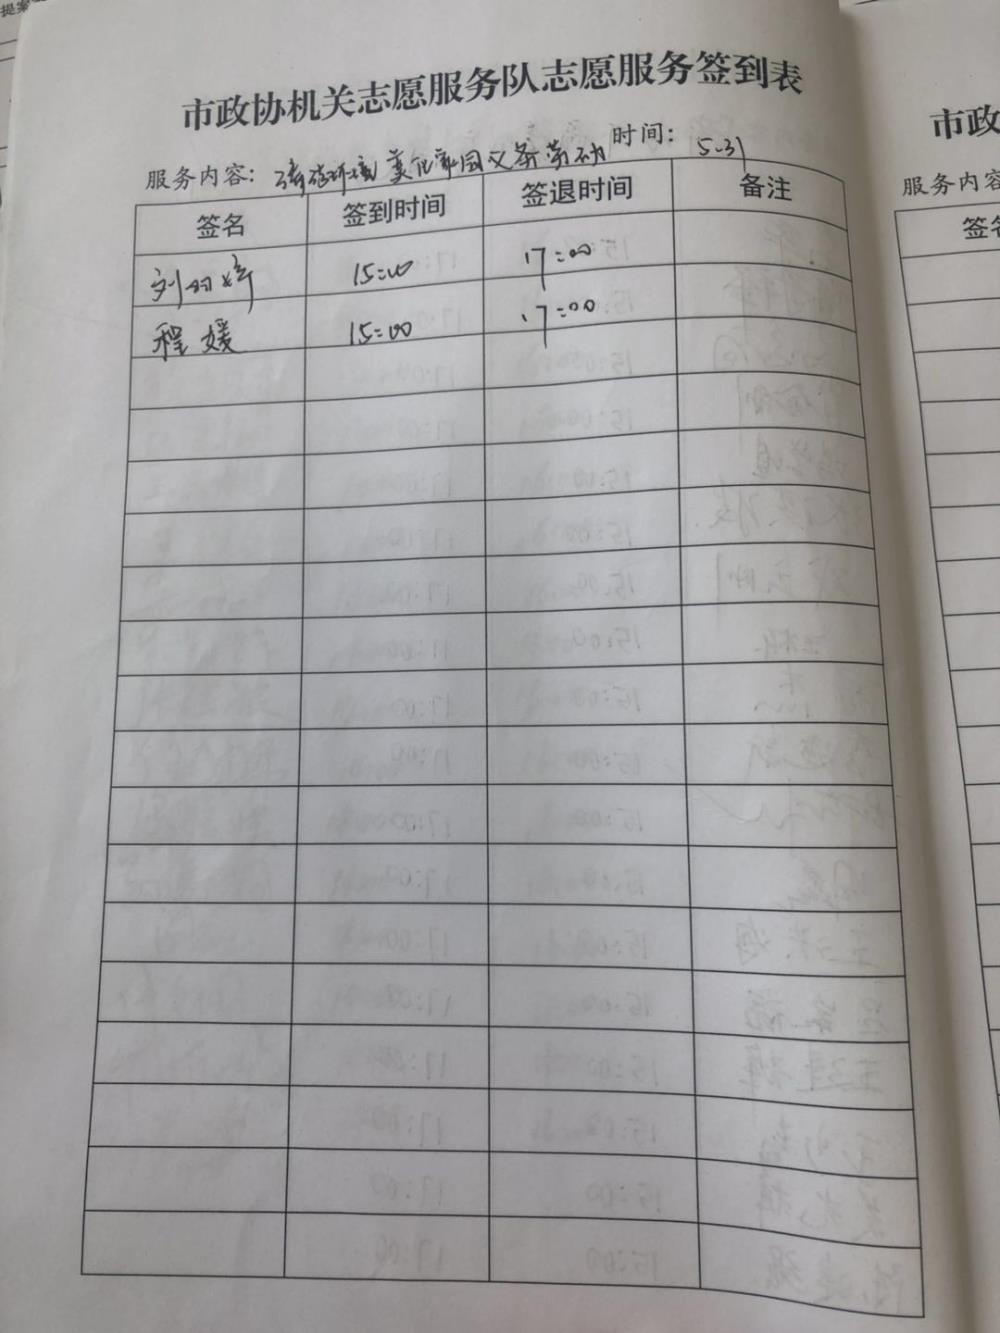 提案
市政协机关志愿服务队志愿服务签到表
服务内容：清洁环境 美化家园义务劳动 时间：5.31
签名 签到时间 签退时间 备注
刘 15:00 17:00
程媛 15:00 17:00
市政
服务内容
签名